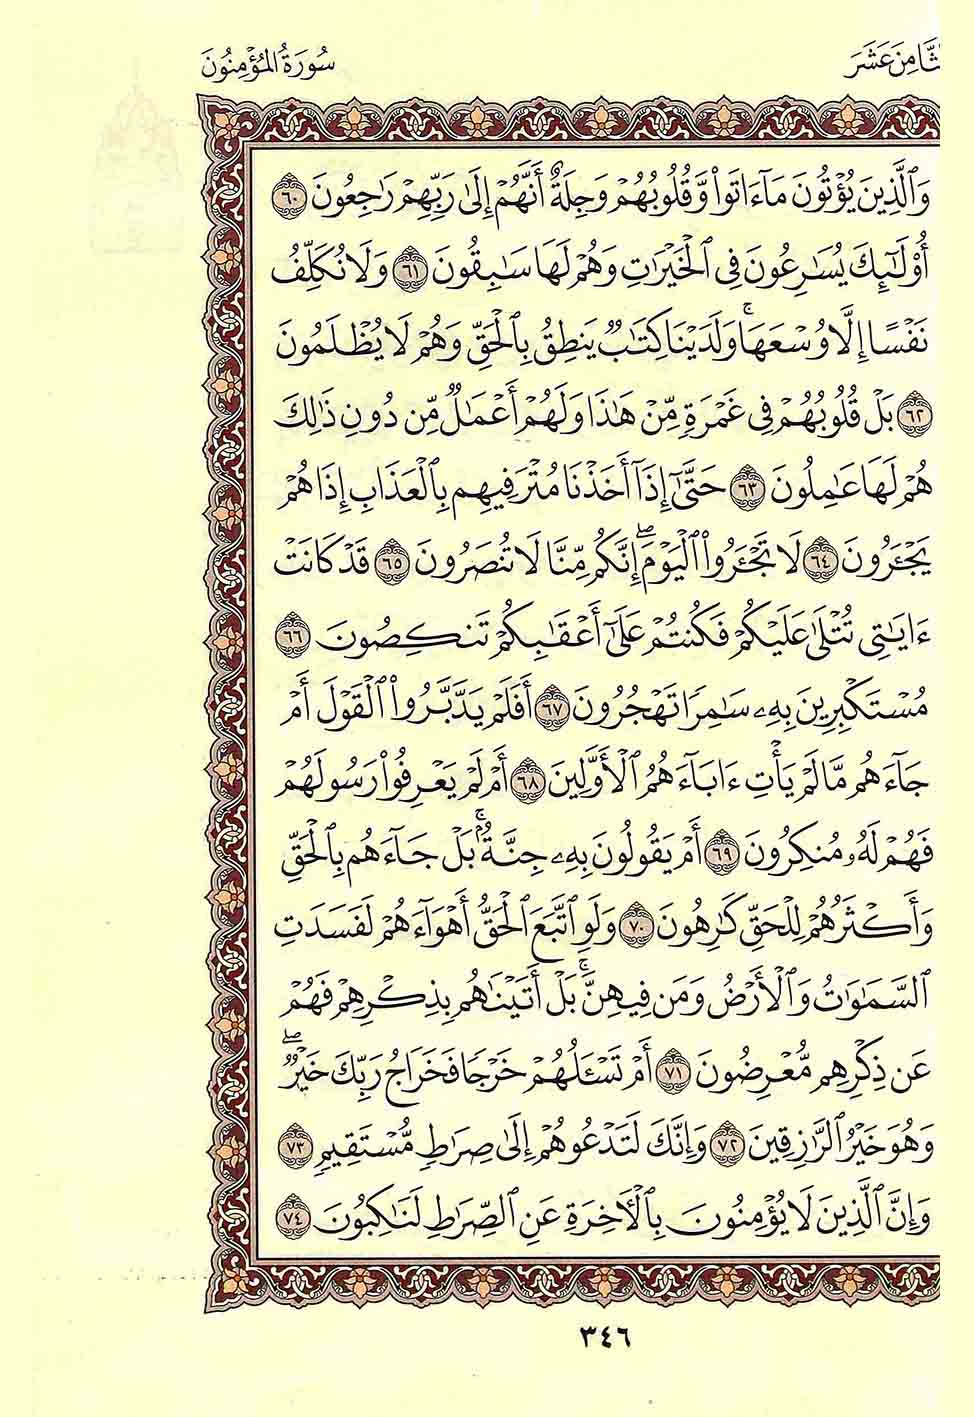 ٱلثَّامِنَ عَشَرَ
سُورَةُ المُؤْمِنُونَ
وَٱلَّذِينَ يُؤْتُونَ مَآ ءَاتَوا۟ وَّقُلُوبُهُمْ وَجِلَةٌ أَنَّهُمْ إِلَىٰ رَبِّهِمْ رَٰجِعُونَ ٦٠
أُو۟لَٰٓئِكَ يُسَٰرِعُونَ فِى ٱلْخَيْرَٰتِ وَهُمْ لَهَا سَٰبِقُونَ ٦١ وَلَا نُكَلِّفُ
نَفْسًا إِلَّا وُسْعَهَا ۚ وَلَدَيْنَا كِتَٰبٌ يَنطِقُ بِٱلْحَقِّ وَهُمْ لَا يُظْلَمُونَ
٦٢ بَلْ قُلُوبُهُمْ فِى غَمْرَةٍ مِّنْ هَٰذَا وَلَهُمْ أَعْمَٰلٌ مِّن دُونِ ذَٰلِكَ
هُمْ لَهَا عَٰمِلُونَ ٦٣ حَتَّىٰٓ إِذَآ أَخَذْنَا مُتْرَفِيهِم بِٱلْعَذَابِ إِذَا هُمْ
يَجْـَٔرُونَ ٦٤ لَا تَجْـَٔرُوا۟ ٱلْيَوْمَ ۖ إِنَّكُم مِّنَّا لَا تُنصَرُونَ ٦٥ قَدْ كَانَتْ
ءَايَٰتِى تُتْلَىٰ عَلَيْكُمْ فَكُنتُمْ عَلَىٰٓ أَعْقَٰبِكُمْ تَنكِصُونَ ٦٦
مُسْتَكْبِرِينَ بِهِۦ سَٰمِرًا تَهْجُرُونَ ٦٧ أَفَلَمْ يَدَّبَّرُوا۟ ٱلْقَوْلَ أَمْ
جَآءَهُم مَّا لَمْ يَأْتِ ءَابَآءَهُمُ ٱلْأَوَّلِينَ ٦٨ أَمْ لَمْ يَعْرِفُوا۟ رَسُولَهُمْ
فَهُمْ لَهُۥ مُنكِرُونَ ٦٩ أَمْ يَقُولُونَ بِهِۦ جِنَّةٌۢ ۚ بَلْ جَآءَهُم بِٱلْحَقِّ
وَأَكْثَرُهُمْ لِلْحَقِّ كَٰرِهُونَ ٧٠ وَلَوِ ٱتَّبَعَ ٱلْحَقُّ أَهْوَآءَهُمْ لَفَسَدَتِ
ٱلسَّمَٰوَٰتُ وَٱلْأَرْضُ وَمَن فِيهِنَّ ۚ بَلْ أَتَيْنَٰهُم بِذِكْرِهِمْ فَهُمْ
عَن ذِكْرِهِم مُّعْرِضُونَ ٧١ أَمْ تَسْـَٔلُهُمْ خَرْجًا فَخَرَاجُ رَبِّكَ خَيْرٌ ۖ
وَهُوَ خَيْرُ ٱلرَّٰزِقِينَ ٧٢ وَإِنَّكَ لَتَدْعُوهُمْ إِلَىٰ صِرَٰطٍ مُّسْتَقِيمٍ ٧٣
وَإِنَّ ٱلَّذِينَ لَا يُؤْمِنُونَ بِٱلْـَٔاخِرَةِ عَنِ ٱلصِّرَٰطِ لَنَٰكِبُونَ ٧٤
٣٤٦